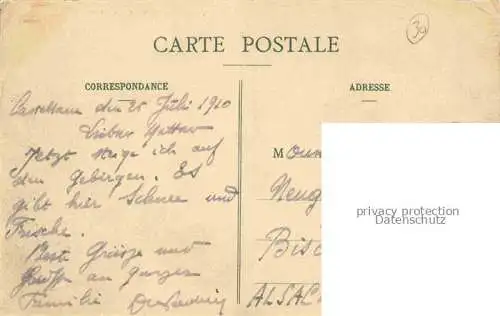 39
CARTE POSTALE
CORRESPONDANCE
ADRESSE
den 25 Juli 1910
Lieber
Jetzt steige ich auf
den Gebirgen. Es
gibt hier Schnee und
Frische.
Beste Grüsse und
an ganzer
Familie
M
Neug
Bisc
ALSAC
privacy protection
Datenschutz